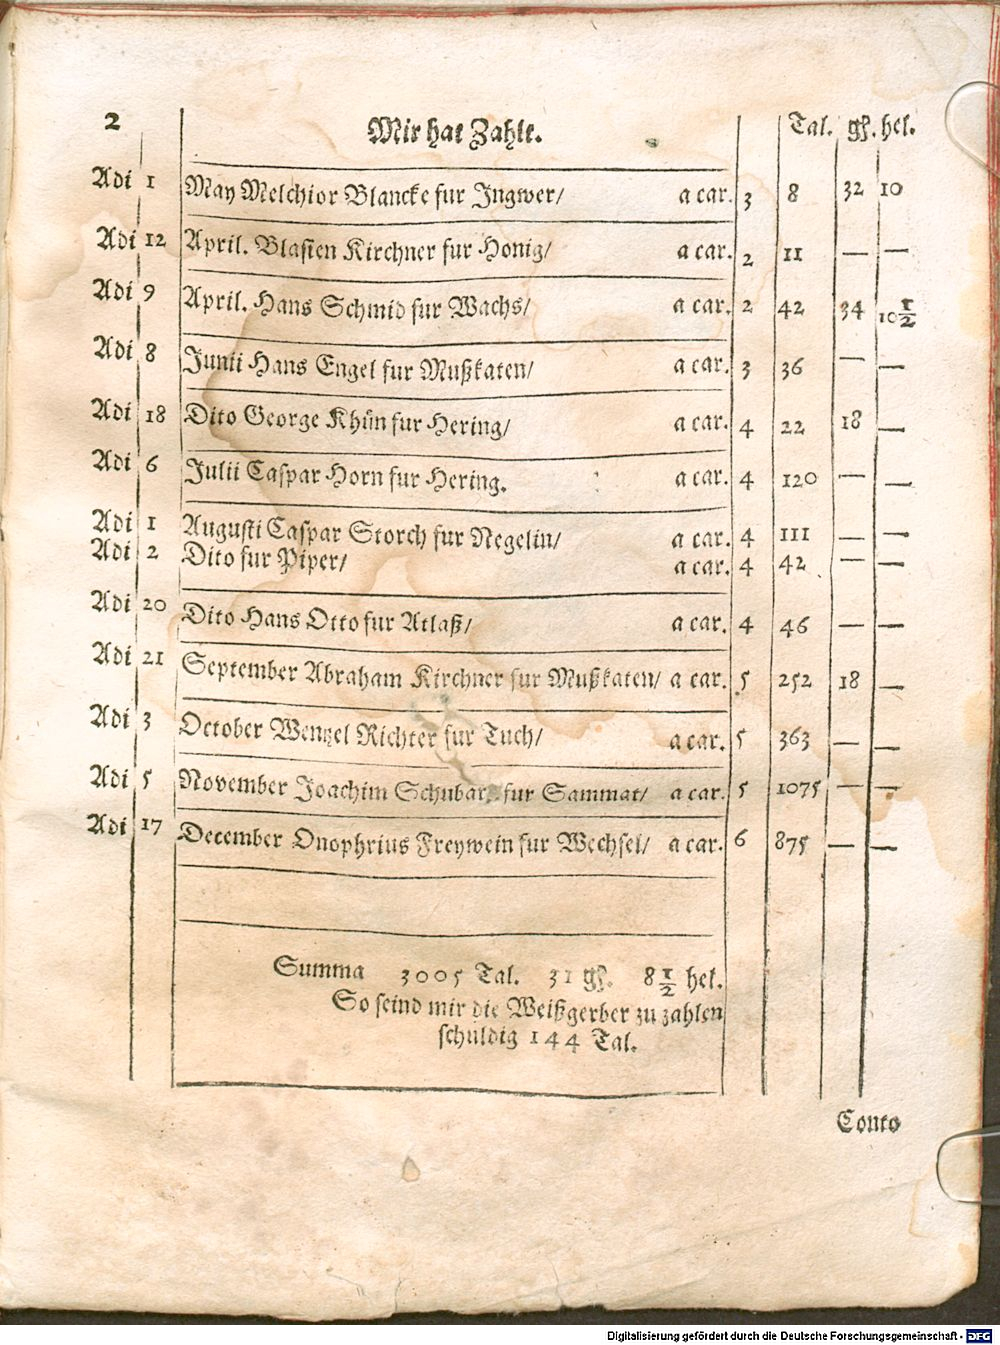 2 Mir hat Zahlt. Tal. gß. hel.
Adi 1 May Melchior Blancke fur Ingwer/ a car. 3 8 32 10
Adi 12 April. Blasien Kirchner fur Honig/ a car. 2 11 — —
Adi 9 April. Hans Schmid fur Wachs/ a car. 2 42 34 10½
Adi 8 Junii Hans Engel fur Mußkaten/ a car. 3 36 — —
Adi 18 Dito George Khůn fur Hering/ a car. 4 22 18 —
Adi 6 Julii Caspar Horn fur Hering. a car. 4 120 — —
Adi 1 Augusti Caspar Storch fur Negelin/ a car. 4 111 — —
Adi 2 Dito fur Piper/ a car. 4 42 — —
Adi 20 Dito Hans Otto fur Atlaß/ a car. 4 46 — —
Adi 21 September Abraham Kirchner fur Mußkaten/ a car. 5 252 18 —
Adi 3 October Wentzel Richter fur Tuch/ a car. 5 363 — —
Adi 5 November Joachim fur Sammat/ a car. 5 1075 — —
Adi 17 December Onophrius Freywein fur Wechsel/ a car. 6 875 — —
Summa 3005 Tal. 31 gß. 8½ hel.
So seind mir die Weißgerber zu zahlen
schuldig 144 Tal.
Conto
Digitalisierung gefördert durch die Deutsche Forschungsgemeinschaft - DFG